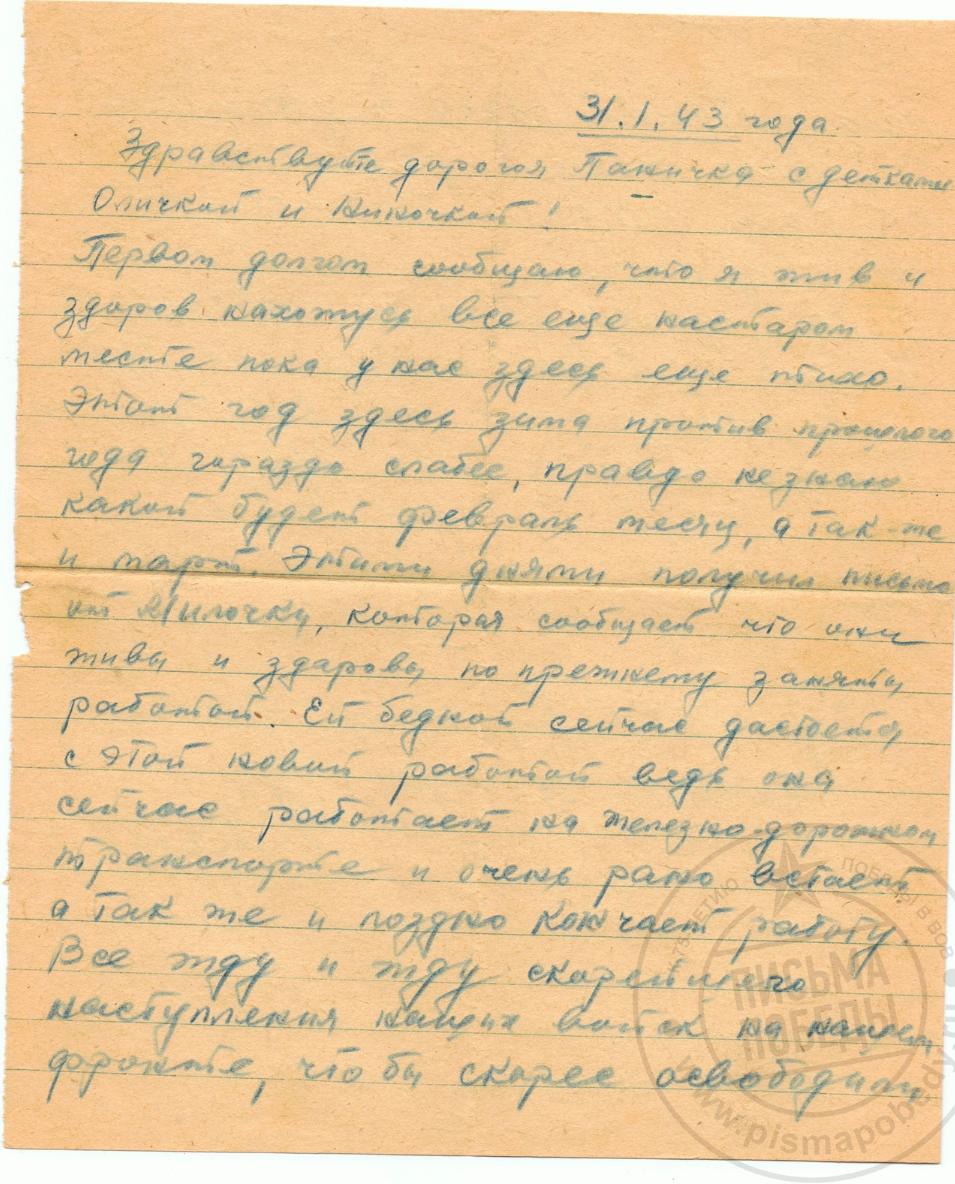 31.1.43 года.
Здравствуйте дорогая Паничка с детками
Оличкой и Ниночкой!
Первом долгом сообщаю, что я жив и
здоров. нахожусь все еще настаром
месте пока у нас здесь еще тихо.
Этот год здесь зима против прошлого
года гораздо слабее, правдо незнаю
какой будет февраль месяц, а так-же
и март. Этими днями получил письмо
от Милочки, которая сообщает что они
живы и здаровы по прежнему заняты
работой. Ей бедной сейчас достоется
с этой новой работой ведь она
сейчас работает на железно-дорожном
транспорте и очень рано встает
а так же и поздно кончает работу.
Все жду и жду скорейшего
наступления наших войск на нашем
фронте, что бы скорее освободили
ПОБЕДЫ В ВОВ
ПИСЬМА
ПОБЕДЫ
www.pismapobedy.ru